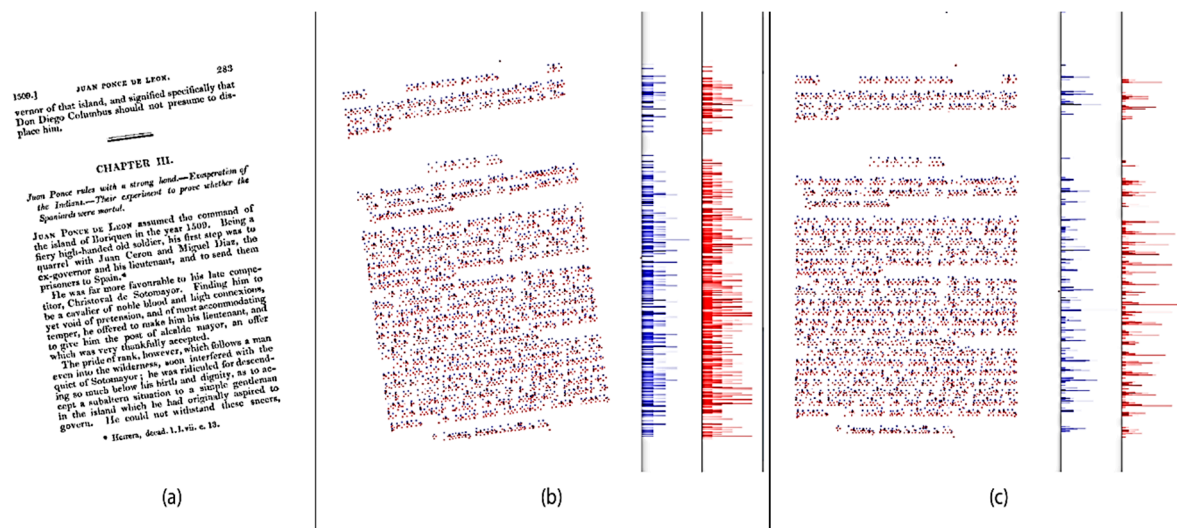 1509.] JUAN PONCE DE LEON. 283
vernor of that island, and signified specifically that
Don Diego Columbus should not presume to dis-
place him.
CHAPTER III.
Juan Ponce rules with a strong hand.—Exasperation of
the Indians.—Their experiment to prove whether the
Spaniards were mortal.
JUAN PONCE DE LEON assumed the command of
the island of Boriquen in the year 1509. Being a
fiery high-handed old soldier, his first step was to
quarrel with Juan Ceron and Miguel Diaz, the
ex-governor and his lieutenant, and to send them
prisoners to Spain.*
He was far more favourable to his late compe-
titor, Christoval de Sotomayor. Finding him to
be a cavalier of noble blood and high connexions,
yet void of pretension, and of most accommodating
temper, he offered to make him his lieutenant, and
to give him the post of alcalde mayor, an offer
which was very thankfully accepted.
The pride of rank, however, which follows a man
even into the wilderness, soon interfered with the
quiet of Sotomayor; he was ridiculed for descend-
ing so much below his birth and dignity, as to ac-
cept a subaltern situation to a simple gentleman
in the island which he had originally aspired to
govern. He could not withstand these sneers,
* Herrera, decad. 1. l. vii. c. 13.
(a)
(b)
(c)